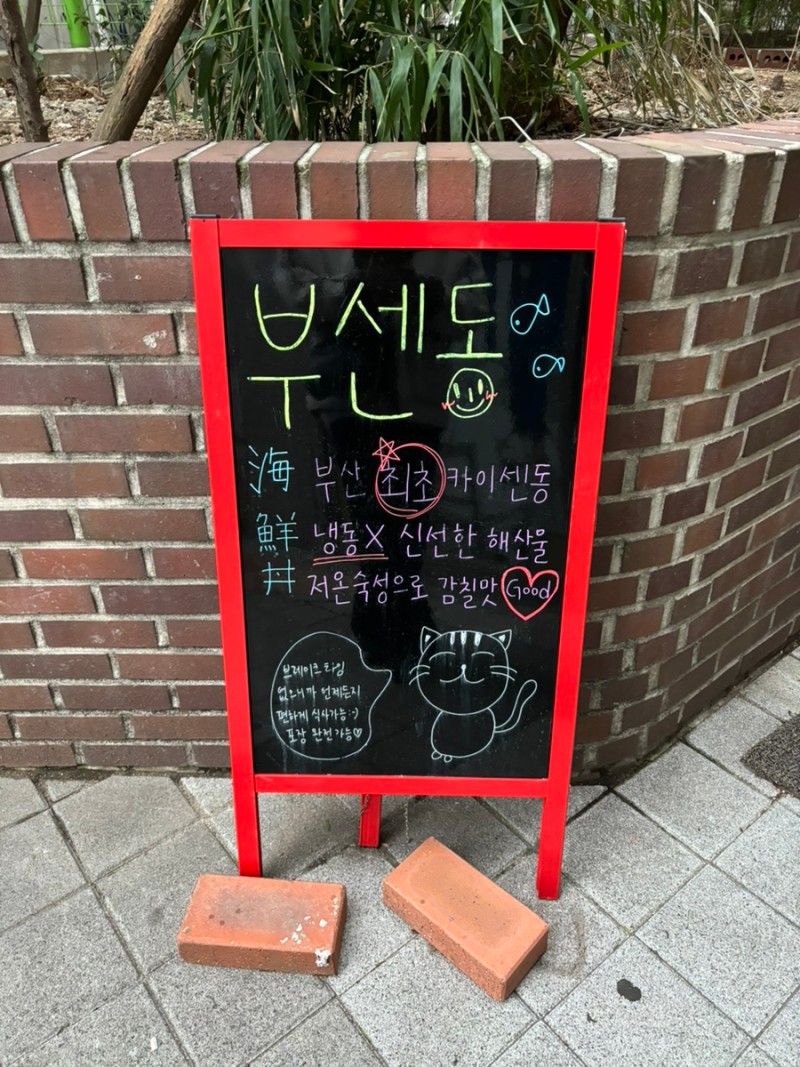 부센동
海鮮丼
부산 최초 카이센동
냉동X 신선한 해산물
저온숙성으로 감칠맛 Good
브레이크타임
없으니까 언제든지
편하게 식사가능 :-)
포장 완전가능♡